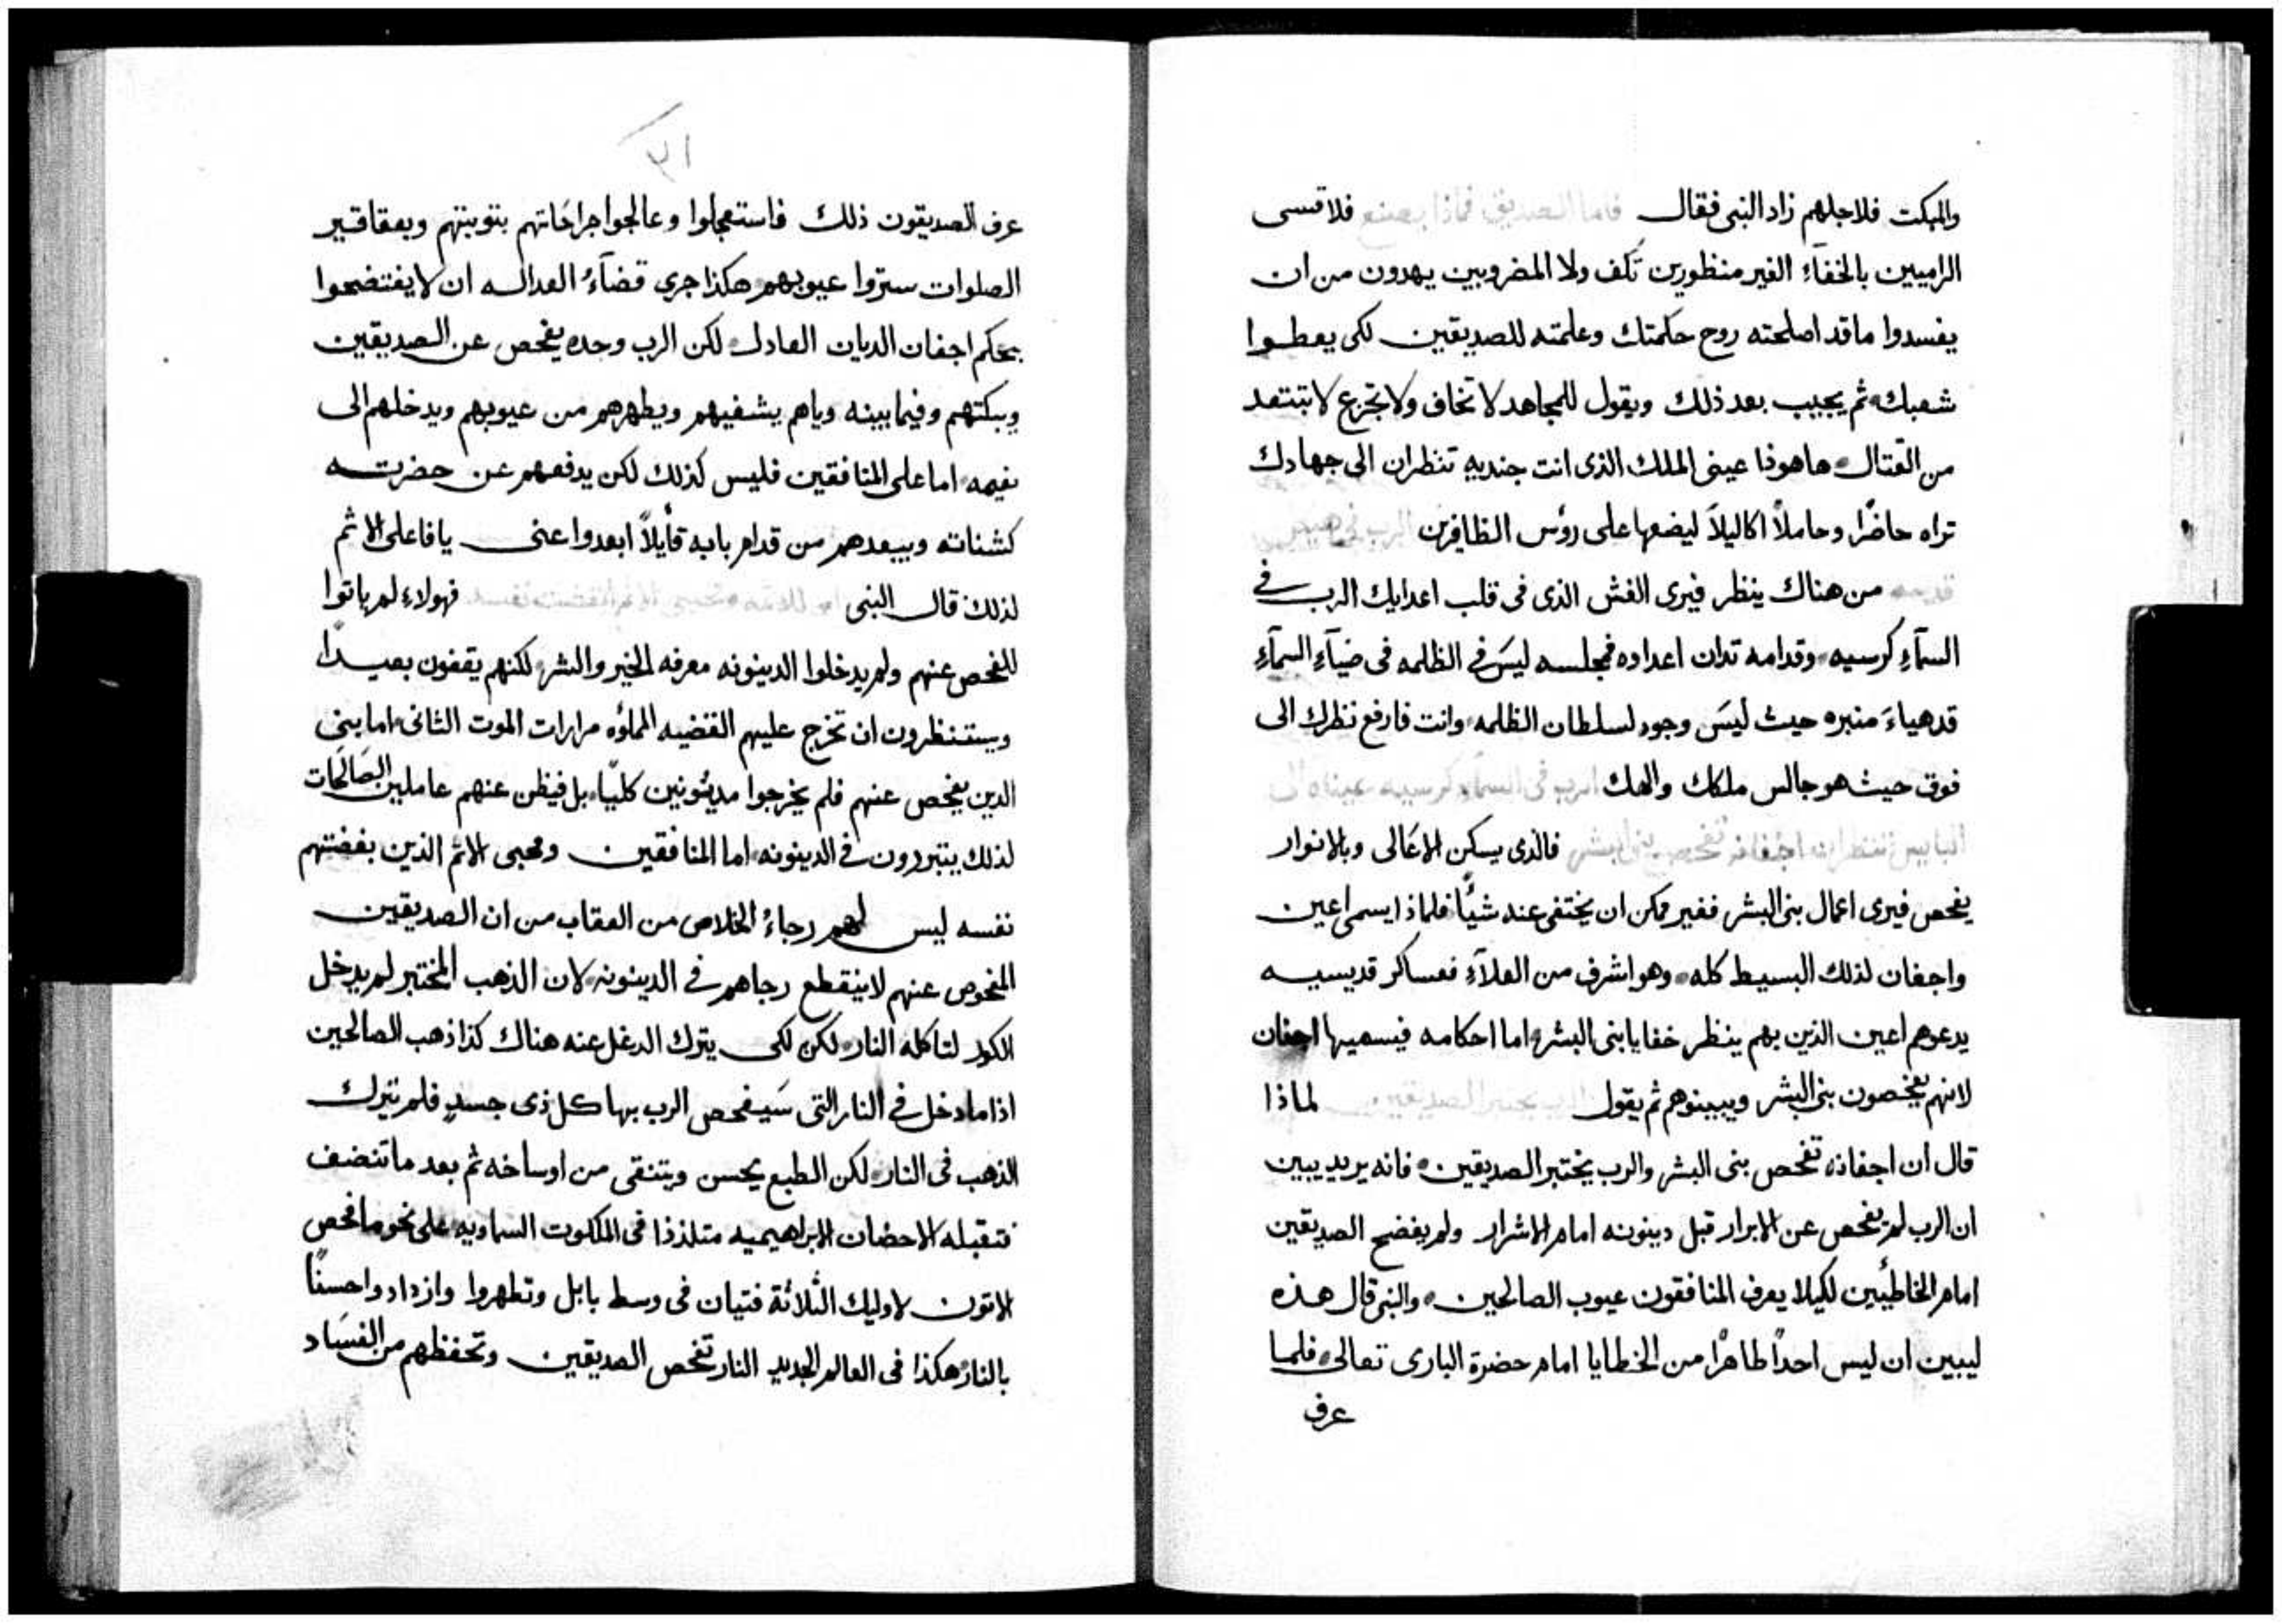 والمبكت فلاجلهم زاد النبى فقال فاما الصديق فماذا يصنع فلا قسى
الراميين بالخفاء الغير منظورين تكف ولا المضروبين يهدون من ان
يفسدوا ما قد اصلحته روح حكمتك وعلمته للصديقين لكى يعطوا
شعبك ثم يجيب بعد ذلك ويقول للمجاهد لا تخاف ولا تجزع لا تبتعد
من القتال هاهوذا عينى الملك الذى انت جنديه تنظران الى جهادك
تراه حاضرًا وحاملاً اكاليلاً ليضعها على رؤس الظافرين الرب فى هيكل
قدسه من هناك ينظر فيرى الغش الذى فى قلب اعدايك الرب فى
السمآءِ كرسيه وقدامه تدان اعداوه فمجلسه ليسَ فى الظلمه فى ضيآءِ السمآءِ
قد هياءَ منبره حيث ليسَ وجود لسلطان الظلمه وانت فارفع نظرك الى
فوق حيث هو جالس ملكك والهك الرب فى السماء كرسيه عيناه الى
البايس تنظران اجفانه تفحص بنى البشر فالذى يسكن الاعَالى وبالانوار
يفحص فيرى اعمال بنى البشر فغير ممكن ان يختفى عنه شيًا فلماذا يسمى اعين
واجفان لذلك البسيط كله وهو اشرف من العلآءِ فعساكر قديسيه
يدعوهم اعين الذين بهم ينظر خفايا بنى البشر اما احكامه فيسميها اجفان
لانهم يفحصون بنى البشر ويبينوهم ثم يقول الرب يختبر الصديقين لماذا
قال ان اجفانه تفحص بنى البشر والرب يختبر الصديقين فانه يريد يبين
ان الرب لم يفحص عن الابرار قبل دينونه امام الاشرار ولم يفضح الصديقين
امام الخاطئين لكيلا يعرف المنافقون عيوب الصالحين والنبى قال هذه
ليبين ان ليس احدًا طاهرًا من الخطايا امام حضرة البارى تعالى فلما
عرف
٣١
عرف الصديقون ذلك فاستعجلوا وعالجوا جراحَاتهم بتوبتهم وبعقاقير
الصلوات ستروا عيوبهم هكذا جرى قضآءُ العداله ان لا يفتضحوا
بحكم اجفان الديان العادل لكن الرب وحده يفحص عن الصديقين
ويبكتهم وفيما بينه وياهم يشفيهم ويطهرهم من عيوبهم ويدخلهم الى
نعيمه اما على المنافقين فليس كذلك لكن يدفعهم عن حضرته
كشناته ويبعدهم من قدام بابه قأيلاً ابعدوا عنى يا فاعلى الاثم
لذلك قال النبى فهولاءِ لم ياتوا
للفحص عنهم ولم يدخلوا الدينونه معرفه الخير والشر لكنهم يقفون بعيدًا
ويستنظرون ان تخرج عليهم القضيه المملؤه مرارات الموت الثانى اما بنى
الدين يفحص عنهم فلم يخرجوا مديئونين كليًا بل فيظن عنهم عاملين الصَالحَات
لذلك يتبررون فى الدينونه اما المنافقين ومحبى الاثم الذين بغضتهم
نفسه ليس لهم رجاءُ الخلاص من العقاب من ان الصديقين
المفحوص عنهم لا ينقطع رجاهم فى الدينونه لان الذهب المختبر لم يدخل
الكور لتاكله النار لكن لكى يترك الدغل عنه هناك كذا ذهب الصالحين
اذا ما دخل فى النار التى سَيفحص الرب بها كل ذى جسدٍ فلم تترك
الذهب فى النار لكن الطبع يحسن ويتنقى من اوساخه ثم بعد ما تنضف
فتقبله الاحضان الابراهيميه متلذذا فى الملكوت السماويه على نحو ما فحص
الاتون لاوليك الثلاثة فتيان فى وسط بابل وتطهروا وازدادوا حسنًا
بالنار هكذا فى العالم الجديد النار تفحص الصديقين وتحفظهم من الفسَاد